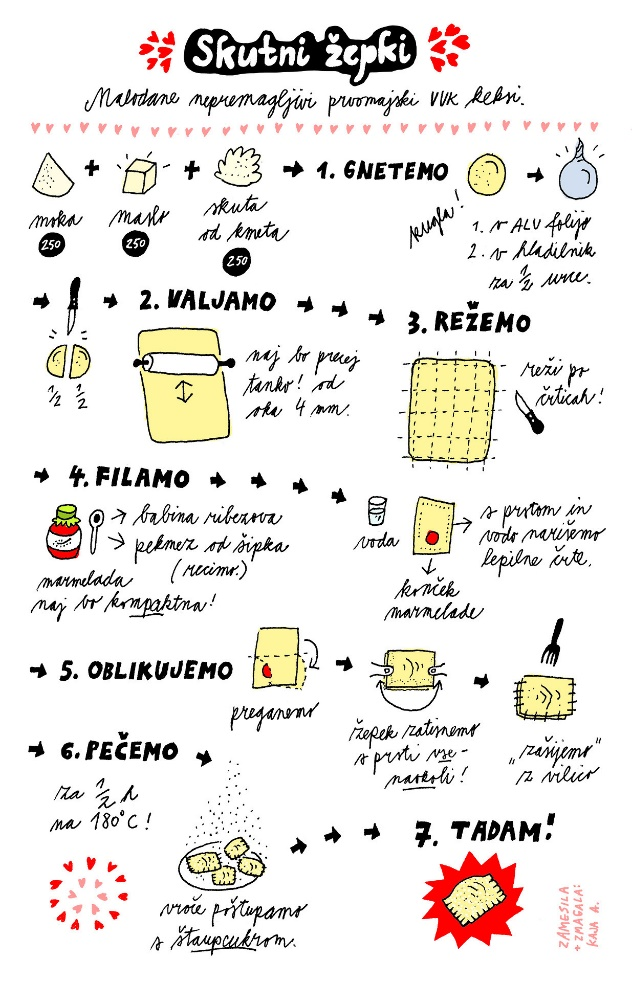 Skutni žepki
Malodane nepremagljivi prvomajski VVK keksi.
moka
250
+
maslo
250
+
skuta
od kmeta
250
1. GNETEMO
kugla!
1. v ALU folijo
2. v hladilnik
za 1/2 urce.
1/2 1/2
2. VALJAMO
naj bo precej
tanko! od
oka 4 mm.
3. REŽEMO
reži po
črticah!
4. FILAMO
babina ribezova
pekmez od šipka
(recimo.)
marmelada
naj bo kompaktna!
voda
konček
marmelade
s prstom in
vodo narišemo
lepilne črte.
5. OBLIKUJEMO
preganemo
žepek zatisnemo
s prsti vse-
naokoli!
„zašijemo"
z vilico
6. PEČEMO
za 1/2 h
na 180°C!
vroče pöštupamo
s štaupcukrom.
7. TADAM!
ZAMESILA
+ ZMAGALA:
KAJA A.